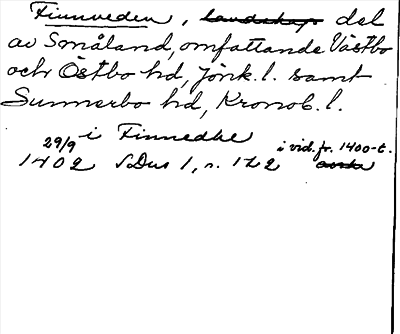 Finnveden, landskap del
av Småland, omfattande Västbo
och Östbo hd, Jönk. l. samt
Sunnerbo hd, Kronob. l.
i Finnedhe i vid. fr. 1400-t.
29/9 1402 SDns 1, s. 122